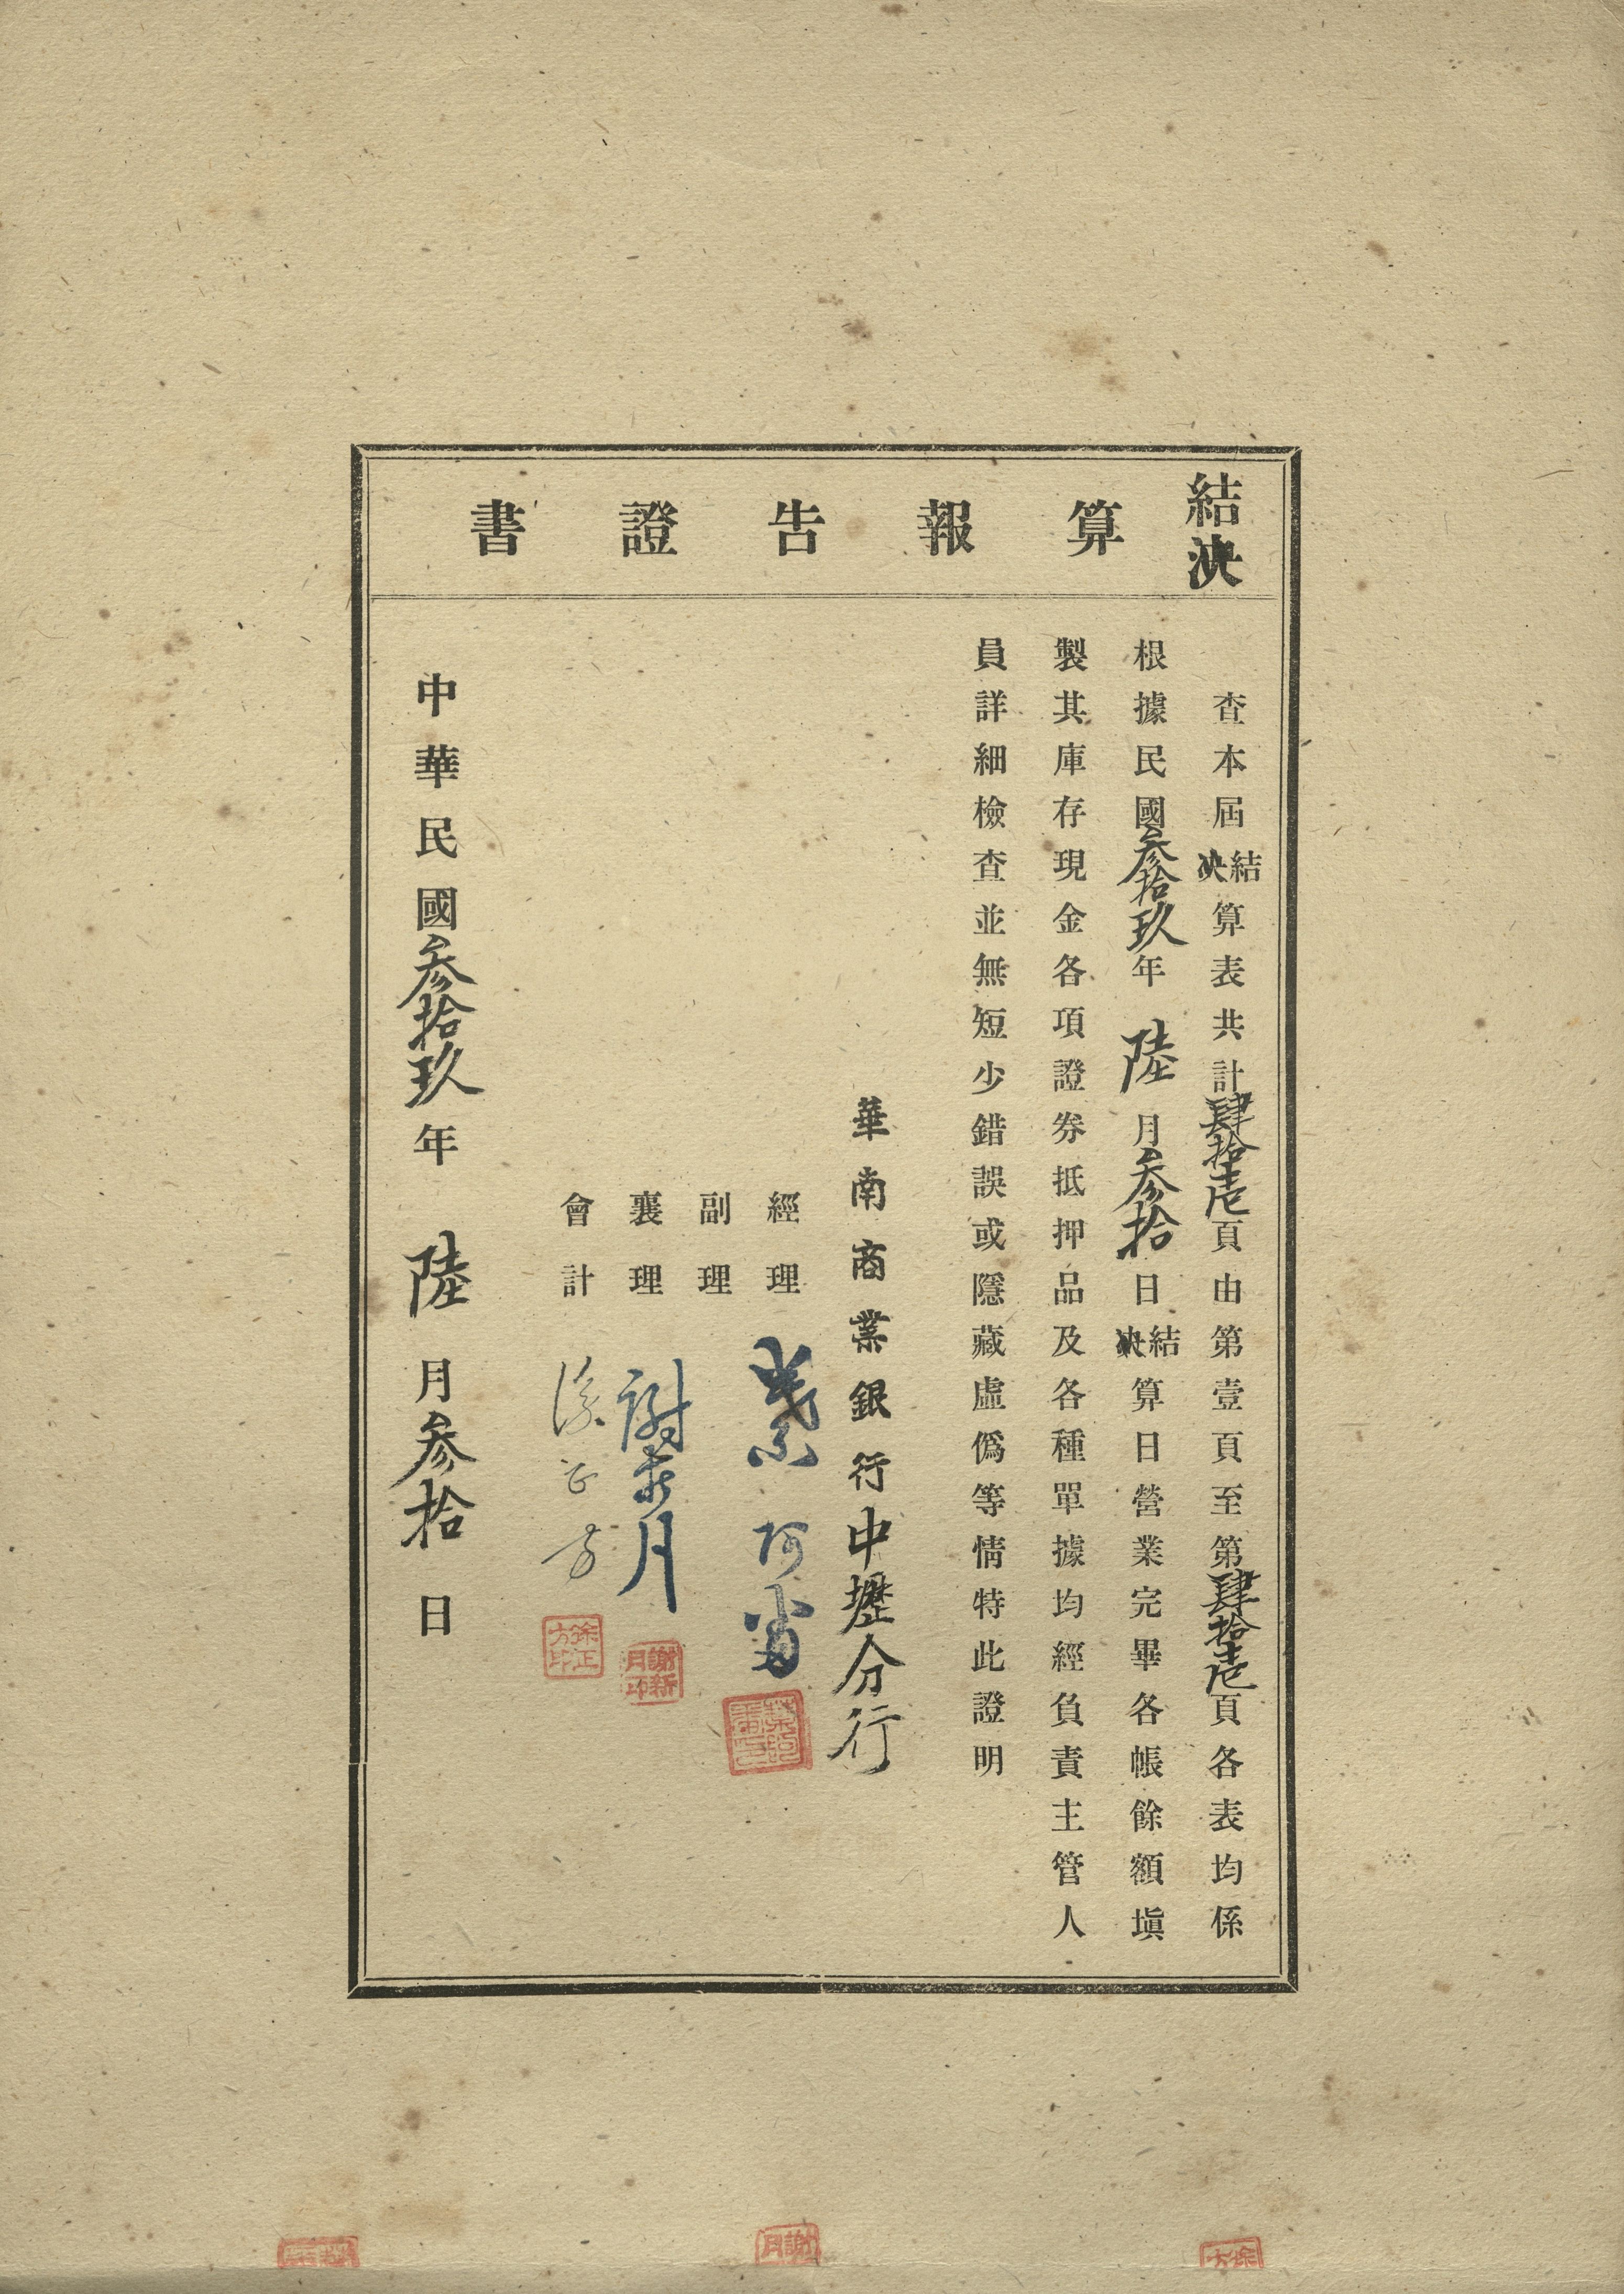 結決算報告證書
查本屆結決算表共計肆拾壱頁由第壹頁至第肆拾壱頁各表均係
根據民國叁拾玖年陸月叁拾日結決算日營業完畢各帳餘額塡
製其庫存現金各項證券抵押品及各種單據均經負責主管人
員詳細檢查並無短少錯誤或隱藏虛僞等情特此證明
華南商業銀行中壢分行
經理 葉阿
副理
襄理 謝新月 謝新月印
會計 徐正方 徐正方印
中華民國叁拾玖年陸月叁拾日
徐方
謝月